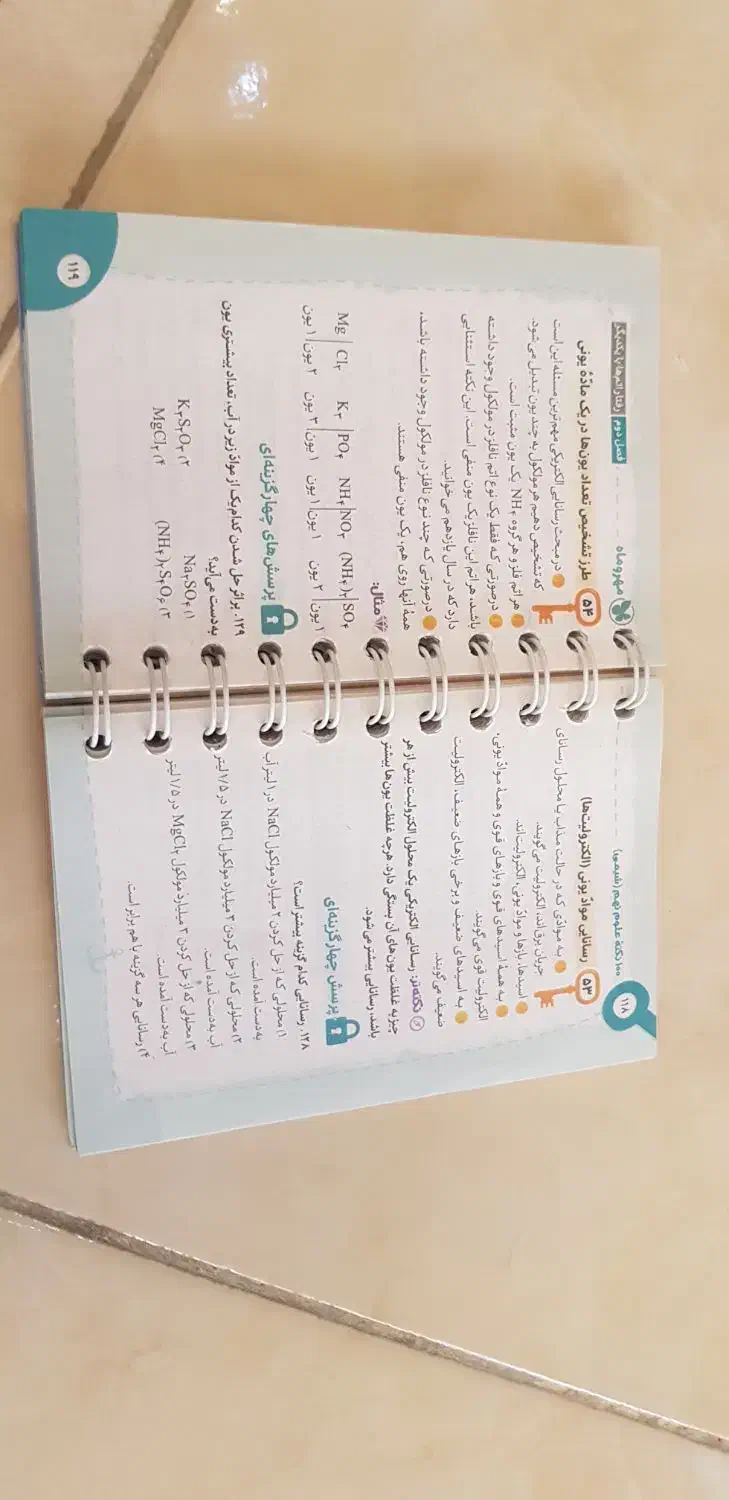 ۱۱۸
۱۰۰ نکتهٔ علوم نهم (شیمی)
۵۳
رسانایی موادّ یونی (الکترولیت‌ها)
به موادّی که در حالت مذاب یا محلول رسانای
جریان برق‌اند، الکترولیت می‌گویند.
اسیدها، بازها و موادّ یونی، الکترولیت‌اند.
به همهٔ اسیدهای قوی و بازهای قوی و همهٔ موادّ یونی،
الکترولیت قوی می‌گویند.
به اسیدهای ضعیف و برخی بازهای ضعیف، الکترولیت
ضعیف می‌گویند.
رسانایی الکتریکی یک محلول الکترولیت بیش از هر
چیز به غلظت یون‌های آن بستگی دارد. هرچه غلظت یون‌ها بیشتر
باشد، رسانایی بیشتر می‌شود.
پرسش چهارگزینه‌ای
۱۲۸. رسانایی کدام گزینه بیشتر است؟
۱) محلولی که از حل کردن ۲ میلیارد مولکول NaCl در ۱ لیتر آب
به‌دست آمده است.
۲) محلولی که از حل کردن ۳ میلیارد مولکول NaCl در ۱/۵ لیتر
آب به‌دست آمده است.
۳) محلولی که از حل کردن ۳ میلیارد مولکول MgCl۲ در ۱/۵ لیتر
آب به‌دست آمده است.
۴) رسانایی هر سه گزینه با هم برابر است.
مهروماه
فصل دوم رفتار اتم‌ها با یکدیگر
۵۴
طرز تشخیص تعداد یون‌ها در یک مادّهٔ یونی
در مبحث رسانایی الکتریکی مهم‌ترین مسئله این است
که تشخیص دهیم هر مولکول به چند یون تبدیل می‌شود.
هر اتم فلز و هر گروه NH۴ یک یون مثبت است.
درصورتی که فقط یک نوع اتم نافلز در مولکول وجود داشته
باشد، هر اتم این نافلز یک یون منفی است. این نکته استثنایی
دارد که در سال یازدهم می‌خوانید.
درصورتی که چند نوع نافلز در مولکول وجود داشته باشد،
همهٔ آنها روی هم، یک یون منفی هستند.
مثال:
Mg | Cl۲ K۳ | PO۴ NH۴ | NO۳ (NH۴)۲ | SO۴
۱ یون ۲ یون ۳ یون ۱ یون ۱ یون ۱ یون ۲ یون ۱
پرسش‌های چهارگزینه‌ای
۱۲۹. براثر حل شدن کدام‌یک از موادّ زیر در آب، تعداد بیشتری یون
به‌دست می‌آید؟
۱) Na۲SO۴ ۲) K۲S۲O۳
۳) (NH۴)۲S۴O۶ ۴) MgCl۲
۱۱۹